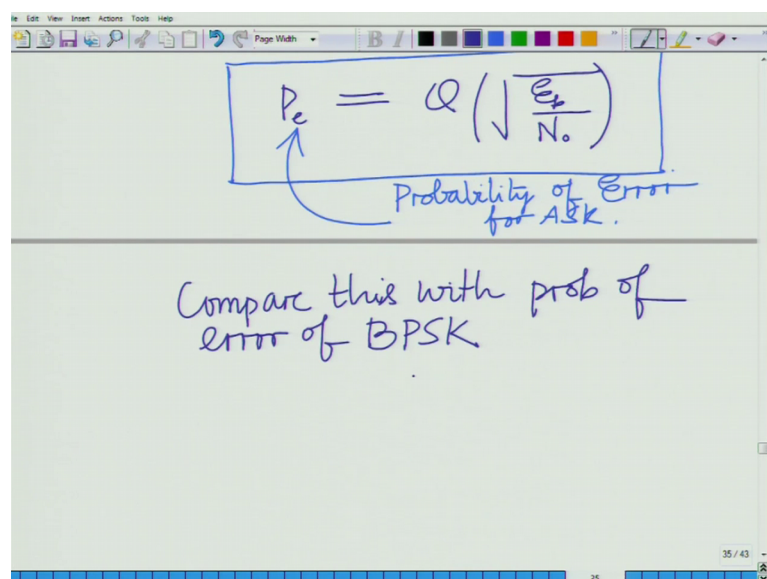 le Edit View Insert Actions Tools Help
Page Width B I
Pe = Q(√(Eb/No))
Probability of Error
for ASK.
Compare this with prob of
error of BPSK.
35 / 43
35